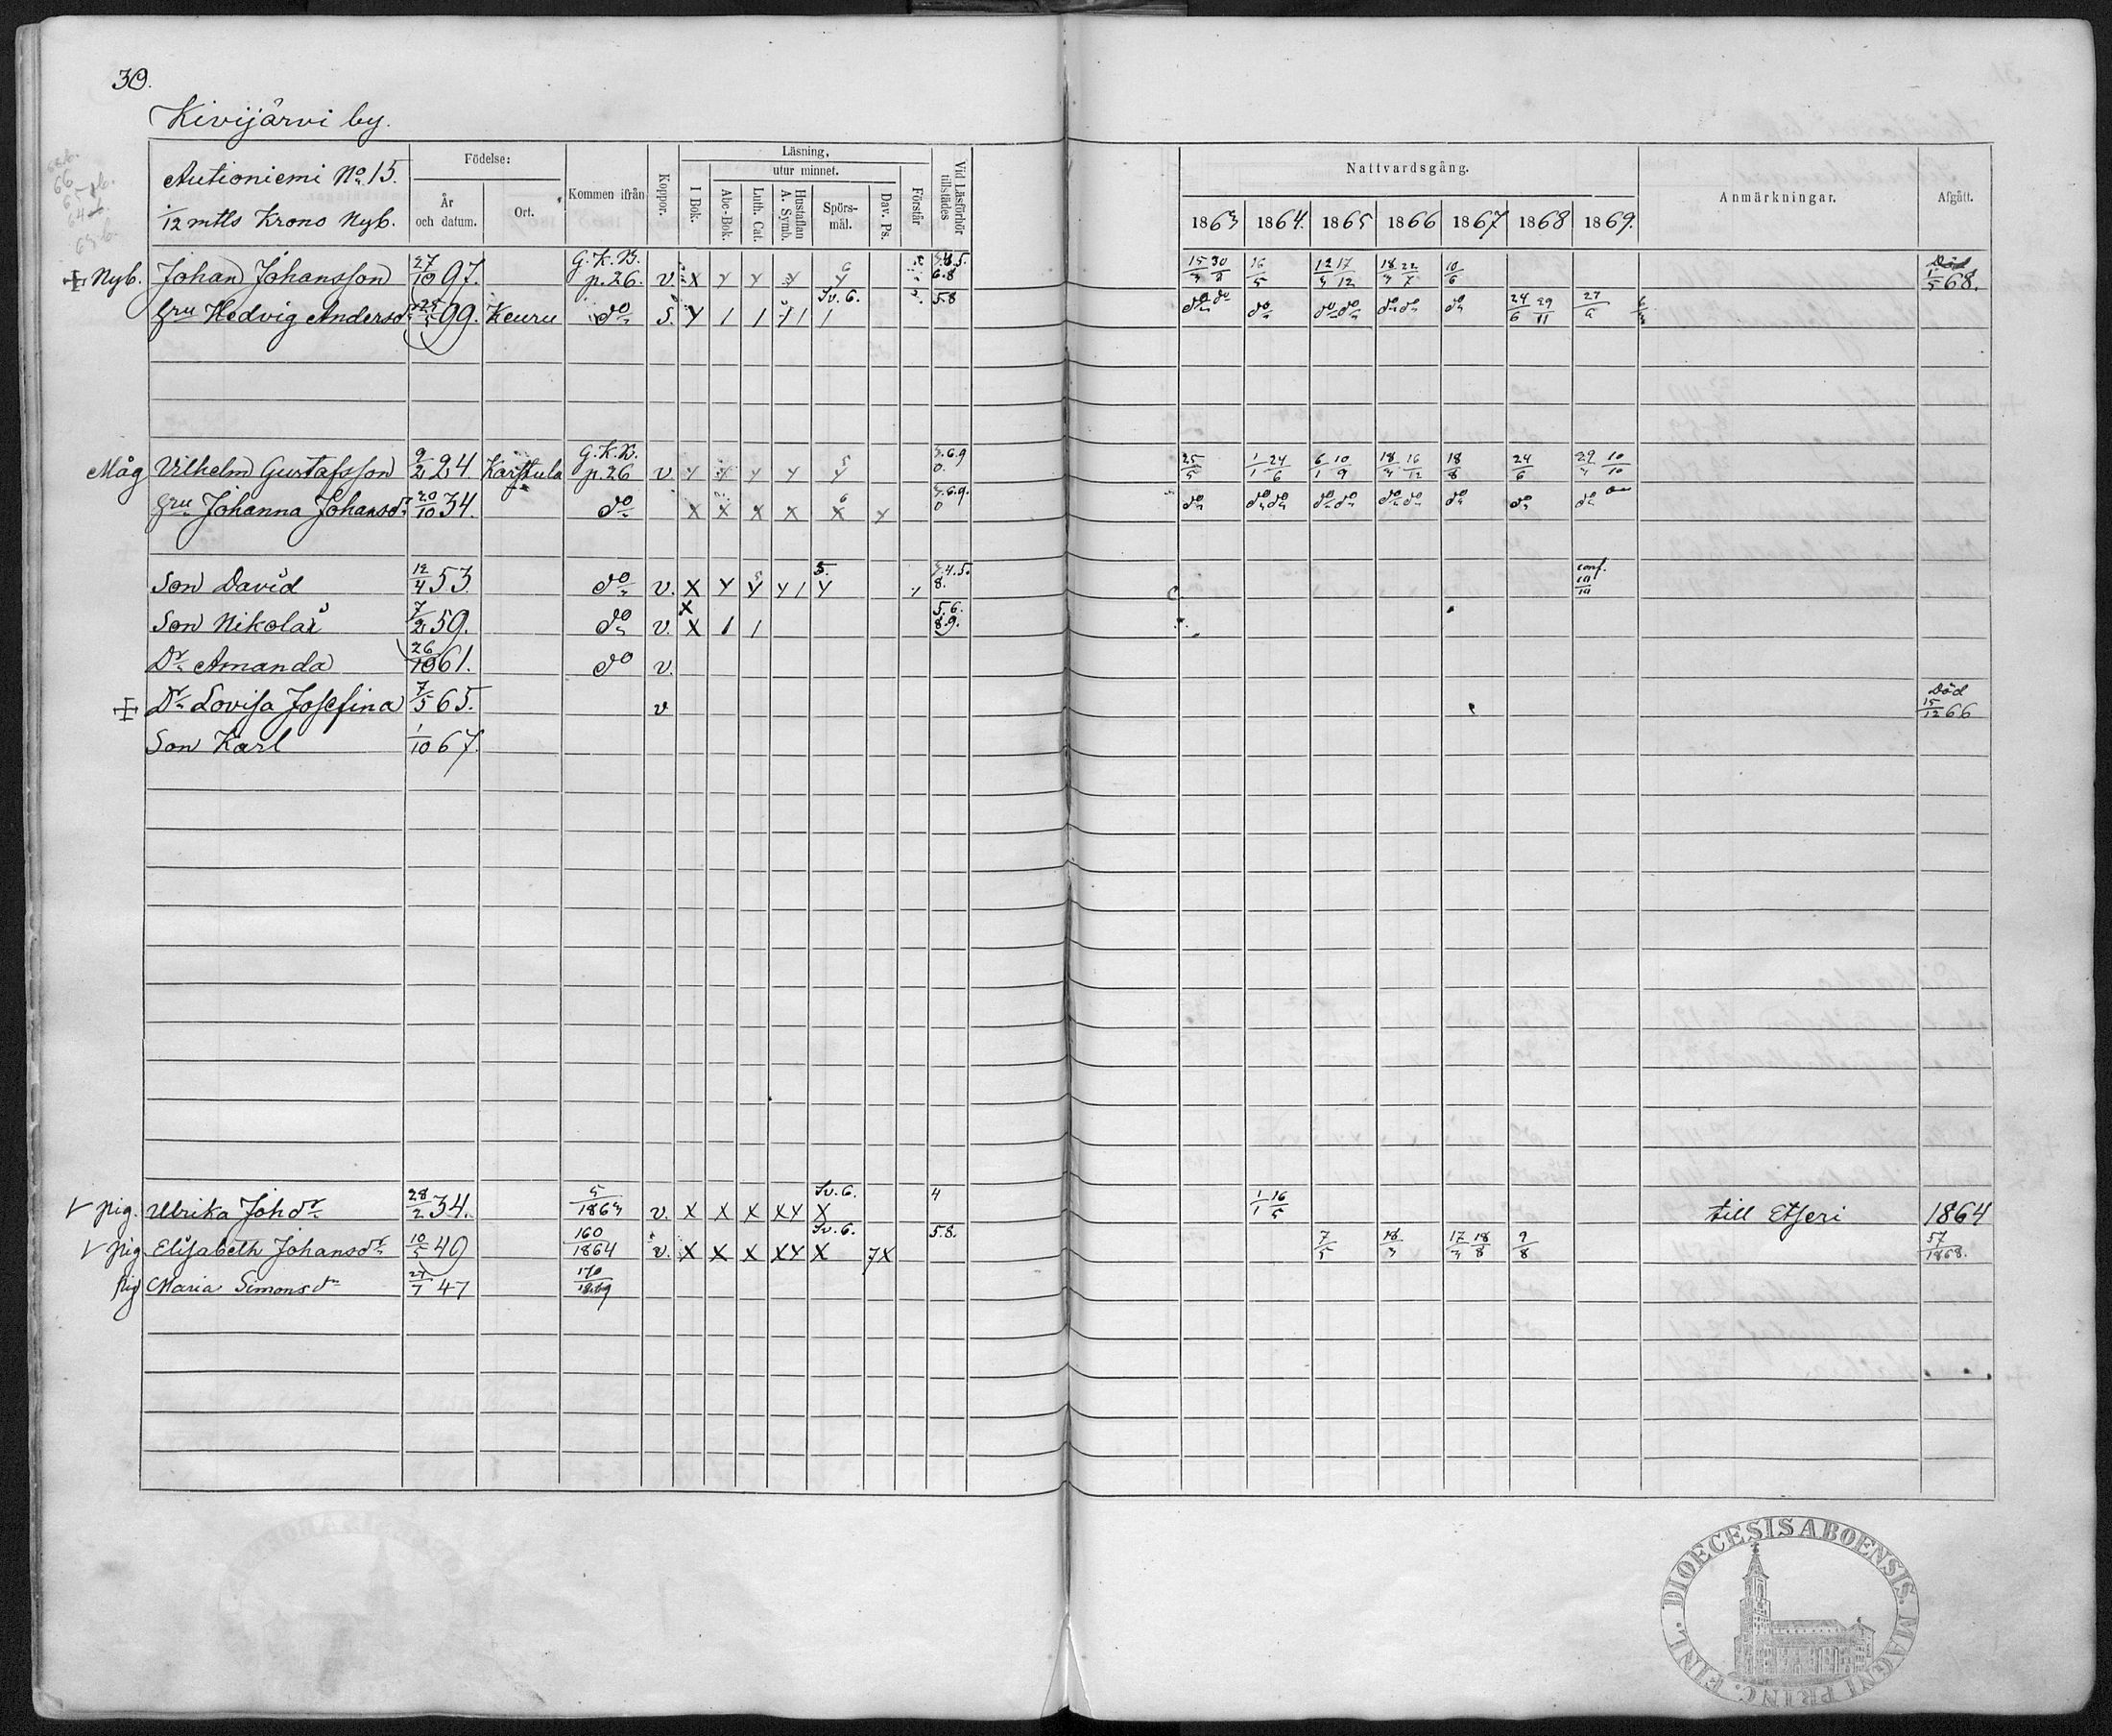 30.
Kivijärvi by.
Autioniemi No 15.
1/12 mtls Krono Nyb.
Födelse:
År och datum.
Ort.
Kommen ifrån
Koppor.
Läsning,
utur minnet.
I Bok.
Abc-Bok.
Luth. Cat.
Hustaflan A. Symb.
Spörs-mål.
Dav. Ps.
Förstår
Vid Läsförhör tillstädes
Nattvardsgång.
1863 1864. 1865 1866 1867 1868 1869.
Anmärkningar.
Afgått.
Nyb. Johan Johansson 27/10 97. G.K.B. p.26. v. X Y Y Y 6 Y 6.8 15/3 30/8 16/5 12/3 17/12 18/3 22/7 10/6 Död 1/5 68.
Hru Hedvig Andersdr 25/5 99. Keuru do S. Y 1 1 1 1 Sv. 6. 1 58 do do do do do do do do 24/6 29/11 27/6
Måg Vilhelm Gustafsson 9/2 24. Karstula G.K.B. p.26 v Y Y Y Y 5 Y 25/5 1/1 24/6 6/1 10/9 18/3 16/12 18/8 24/6 29/3 10/10
Hru Johanna Johansdr 20/10 34. do X X X X 6 X Y do do do do do do do do do do
Son David 12/4 53. do v. X Y Y Y 1 5. Y 8. conf.
Son Nikolai 7/2 59. do v. X X 1 1 5.6. 8.9.
Dr Amanda 26/10 61. do v.
Dr Lovisa Josefina 7/5 65. v Död 15/12 66
Son Karl 1/10 67.
V pig. Ulrika Johdr 28/2 34. 5/1863 v. X X X X Y Sv. 6. X 4 1/1 16/5 till Etseri 1864
V pig Elisabeth Johansdr 10/5 49 160/1864 v. X X X X Y Sv. 6. X 7X 5.8. 7/5 18/3 17/3 18/8 9/8 57/1868.
pig Maria Simonsdr 27/7 47 170/1869
FINL. DIOECESIS ABOENSIS. MAGNI PRINC.